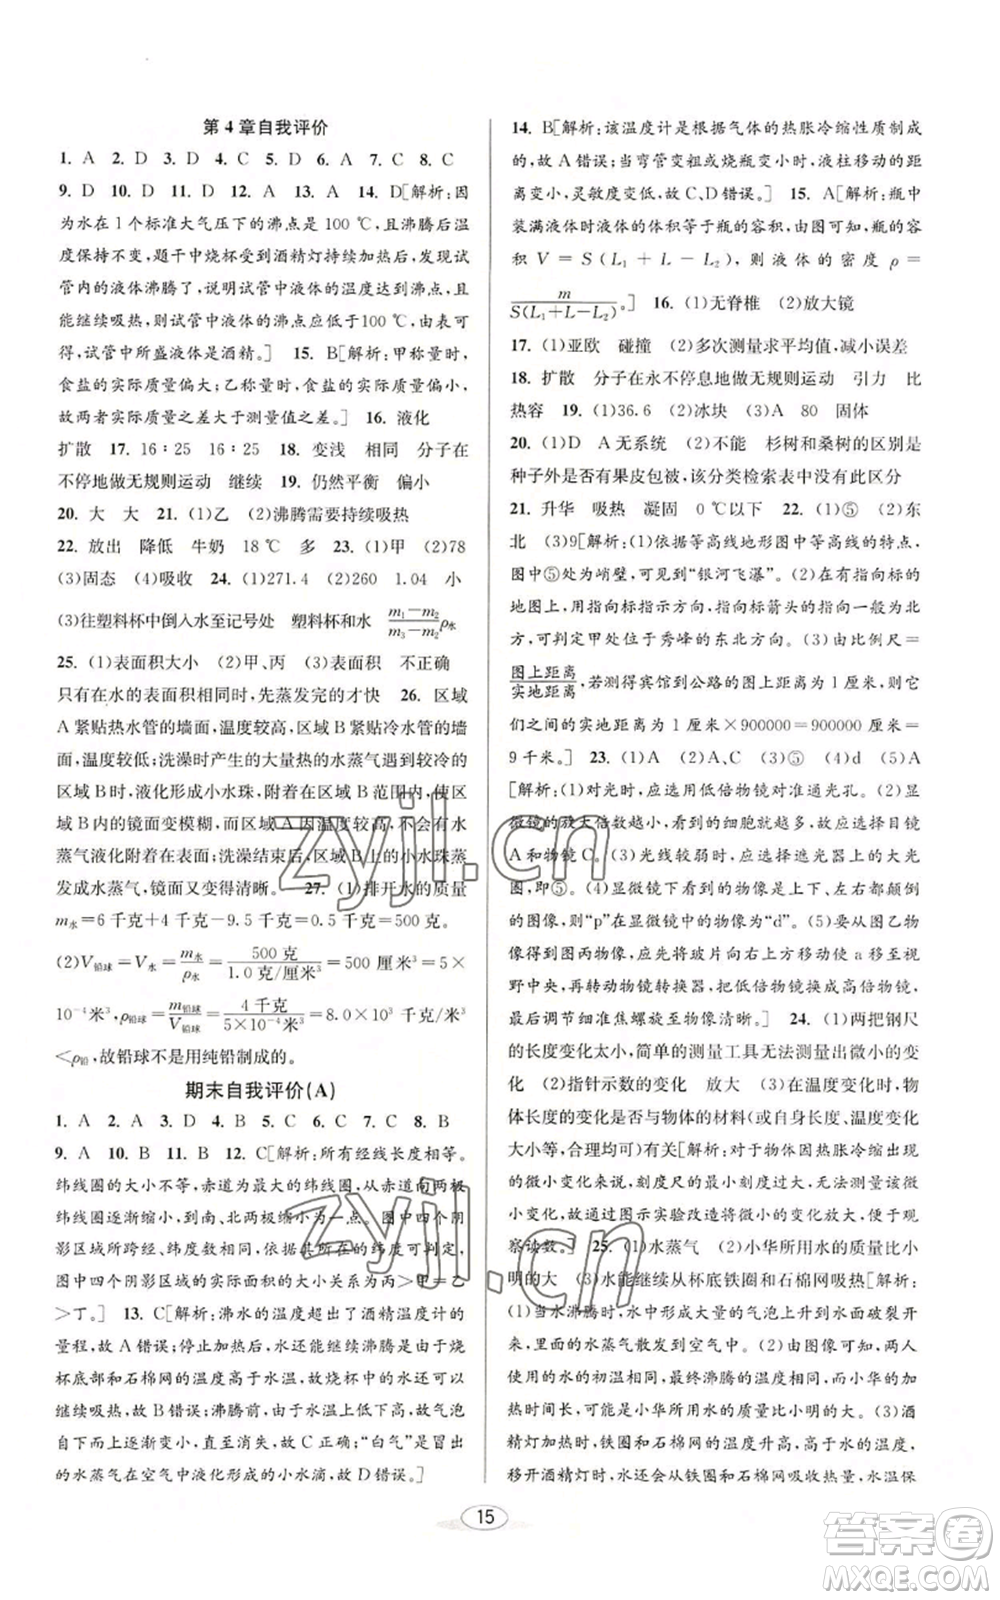 第4章自我评价
1. A 2. D 3. D 4. C 5. D 6. D 7. C 8. C
9. D 10. D 11. D 12. A 13. A 14. D[解析:因
为水在1个标准大气压下的沸点是100 ℃,沸腾后
温度保持不变,题干中烧杯受到酒精灯加热,发现试
管内的液体沸腾了,说明试管中液体的温度达到沸点,且
能继续吸热,则试管中液体的沸点应低于100 ℃,由表可
得,试管中所盛液体是酒精。] 15. B[解析:甲称量时,
食盐的实际质量偏大;乙称量时,食盐的实际质量偏小,
故两者实际质量之差大于测量值之差。] 16. 液化
扩散 17. 16:25 16:25 18. 变浅 相同 分子在
不停地做无规则运动 继续 19. 仍然平衡 偏小
20. 大 大 21. (1)乙 (2)沸腾需要持续吸热
22. 放出 降低 牛奶 18 ℃ 多 23. (1)甲 (2)78
(3)固态 (4)吸收 24. (1)271.4 (2)260 1.04 小
(3)往塑料杯中倒入水至记号处 塑料杯和水 m₁-m₂/m₃-m₂ρ水
25. (1)表面积大小 (2)甲、丙 (3)表面积 不正确
只有在水的表面积相同时,先蒸发完的才快 26. 区域
A紧贴热水管的墙面,温度较高,区域B紧贴冷水管的墙
面,温度较低;洗澡时产生的大量热的水蒸气遇到较冷的
区域B时,液化形成小水珠,附着在区域B的镜面上,使区
域B内的镜面变模糊,而区域A因温度较高,不会有水
蒸气液化附着在镜面;洗澡结束后,区域B上的小水珠蒸
发成水蒸气,镜面又变得清晰。 27. (1)排开水的质量
m水=6千克+4千克-9.5千克=0.5千克=500克。
(2)V铅球=V水=m水/ρ水=500克/1.0克/厘米³=500厘米³=5×
10⁻⁴米³,ρ铅球=m铅球/V铅球=4千克/5×10⁻⁴米³=8.0×10³千克/米³
<ρ铅,故铅球不是用纯铅制成的。
期末自我评价(A)
1. A 2. A 3. D 4. B 5. C 6. C 7. B 8. B
9. A 10. B 11. B 12. C[解析:所有经线长度相等。
纬线圈的大小不等,赤道为最大的纬线圈,从赤道向两极
纬线圈逐渐缩小,到南、北两极缩小为一点。图中四个阴
影区域所跨经、纬度数相等,根据纬度可判定,
图中四个阴影区域的实际面积的大小关系是丙>甲=乙
>丁。] 13. C[解析:沸水的温度超出了酒精温度计的
量程,故A错误;停止加热后,水还能继续沸腾是由于烧
杯底部和石棉网的温度高于水温,故烧杯中的水还可以
继续吸热,故B错误;沸腾前,由于水温上低下高,故气泡
自下而上逐渐变小,直至消失,故C正确;“白气”是冒出
的水蒸气在空气中液化形成的小水滴,故D错误。]
14. B[解析:该温度计是根据气体的热胀冷缩性质制成
的,故A错误;当弯管变粗或烧瓶变小时,液柱移动的距
离变小,灵敏度变低,故C、D错误。] 15. A[解析:瓶中
装满液体时液体的体积等于瓶的容积,由图可知,瓶的容
积V=S(L₁+L-L₂),则液体的密度ρ=
m/S(L₁+L-L₂)。] 16. (1)无脊椎 (2)放大镜
17. (1)亚欧 碰撞 (2)多次测量求平均值,减小误差
18. 扩散 分子在永不停息地做无规则运动 引力 比
热容 19. (1)36.6 (2)冰块 (3)A 80 固体
20. (1)D A无系统 (2)不能 杉树和桑树的区别是
种子外是否有果皮包被,该分类检索表中没有此区分
21. 升华 吸热 凝固 0 ℃以下 22. (1)⑤ (2)东
北 (3)9[解析:(1)依据等高线地形图中等高线的特点,
图中⑤处为峭壁,可见到“银河飞瀑”。(2)在有指向标的
地图上,用指向标指示方向,指向标箭头的指向一般为北
方,可判定甲处位于秀峰的东北方向。(3)由比例尺=
图上距离/实地距离,若测得宾馆到公路的图上距离为1厘米,则它
们之间的实地距离为1厘米×900000=900000厘米=
9千米。] 23. (1)A (2)A、C (3)⑤ (4)d (5)A
[解析:(1)对光时,应选用低倍物镜对准通光孔。(2)显
微镜的放大倍数越小,看到的细胞就越多,故应选择目镜
A和物镜C。(3)光线较弱时,应选择遮光器上的大光
圈,即⑤。(4)显微镜下看到的物像是上下、左右都颠倒
的图像,则“p”在显微镜中的物像为“d”。(5)要从图乙物
像得到图丙物像,应先向右上方移动使a移至视
野中央,再转动物镜转换器,把低倍物镜转换成高倍物镜,
最后调节细准焦螺旋至物像清晰。] 24. (1)两把钢尺
的长度变化太小,简单的测量工具无法测量出微小的变化
(2)指针示数的变化 放大 (3)在温度变化时,物
体长度的变化是否与物体的材料(或自身长度、温度变化
大小等,合理均可)有关[解析:对于物体因热胀冷缩产生
的微小变化来说,刻度尺的最小刻度太大,无法测量该微
小变化,故通过图示实验改造将微小的变化放大,便于观
察读数。] 25. (1)水蒸气 (2)小华所用水的质量比小
明的大 (3)水能继续从杯底铁圈和石棉网吸热[解析:
(1)当水沸腾时,水中形成大量的气泡上升到水面破裂开
来,里面的水蒸气扩散到空气中。(2)由图像可知,两人
所用水的初温相同,最终沸腾的温度也相同,而小华的加
热时间长,所以小华所用水的质量比小明的大。(3)酒
精灯加热时,铁圈和石棉网的温度升高,高于水的温度,
移开酒精灯后,水会从铁圈和石棉网吸收热量,水温保
15
zyjl.cn
zyjl.cn
答案圈
MXQE.COM